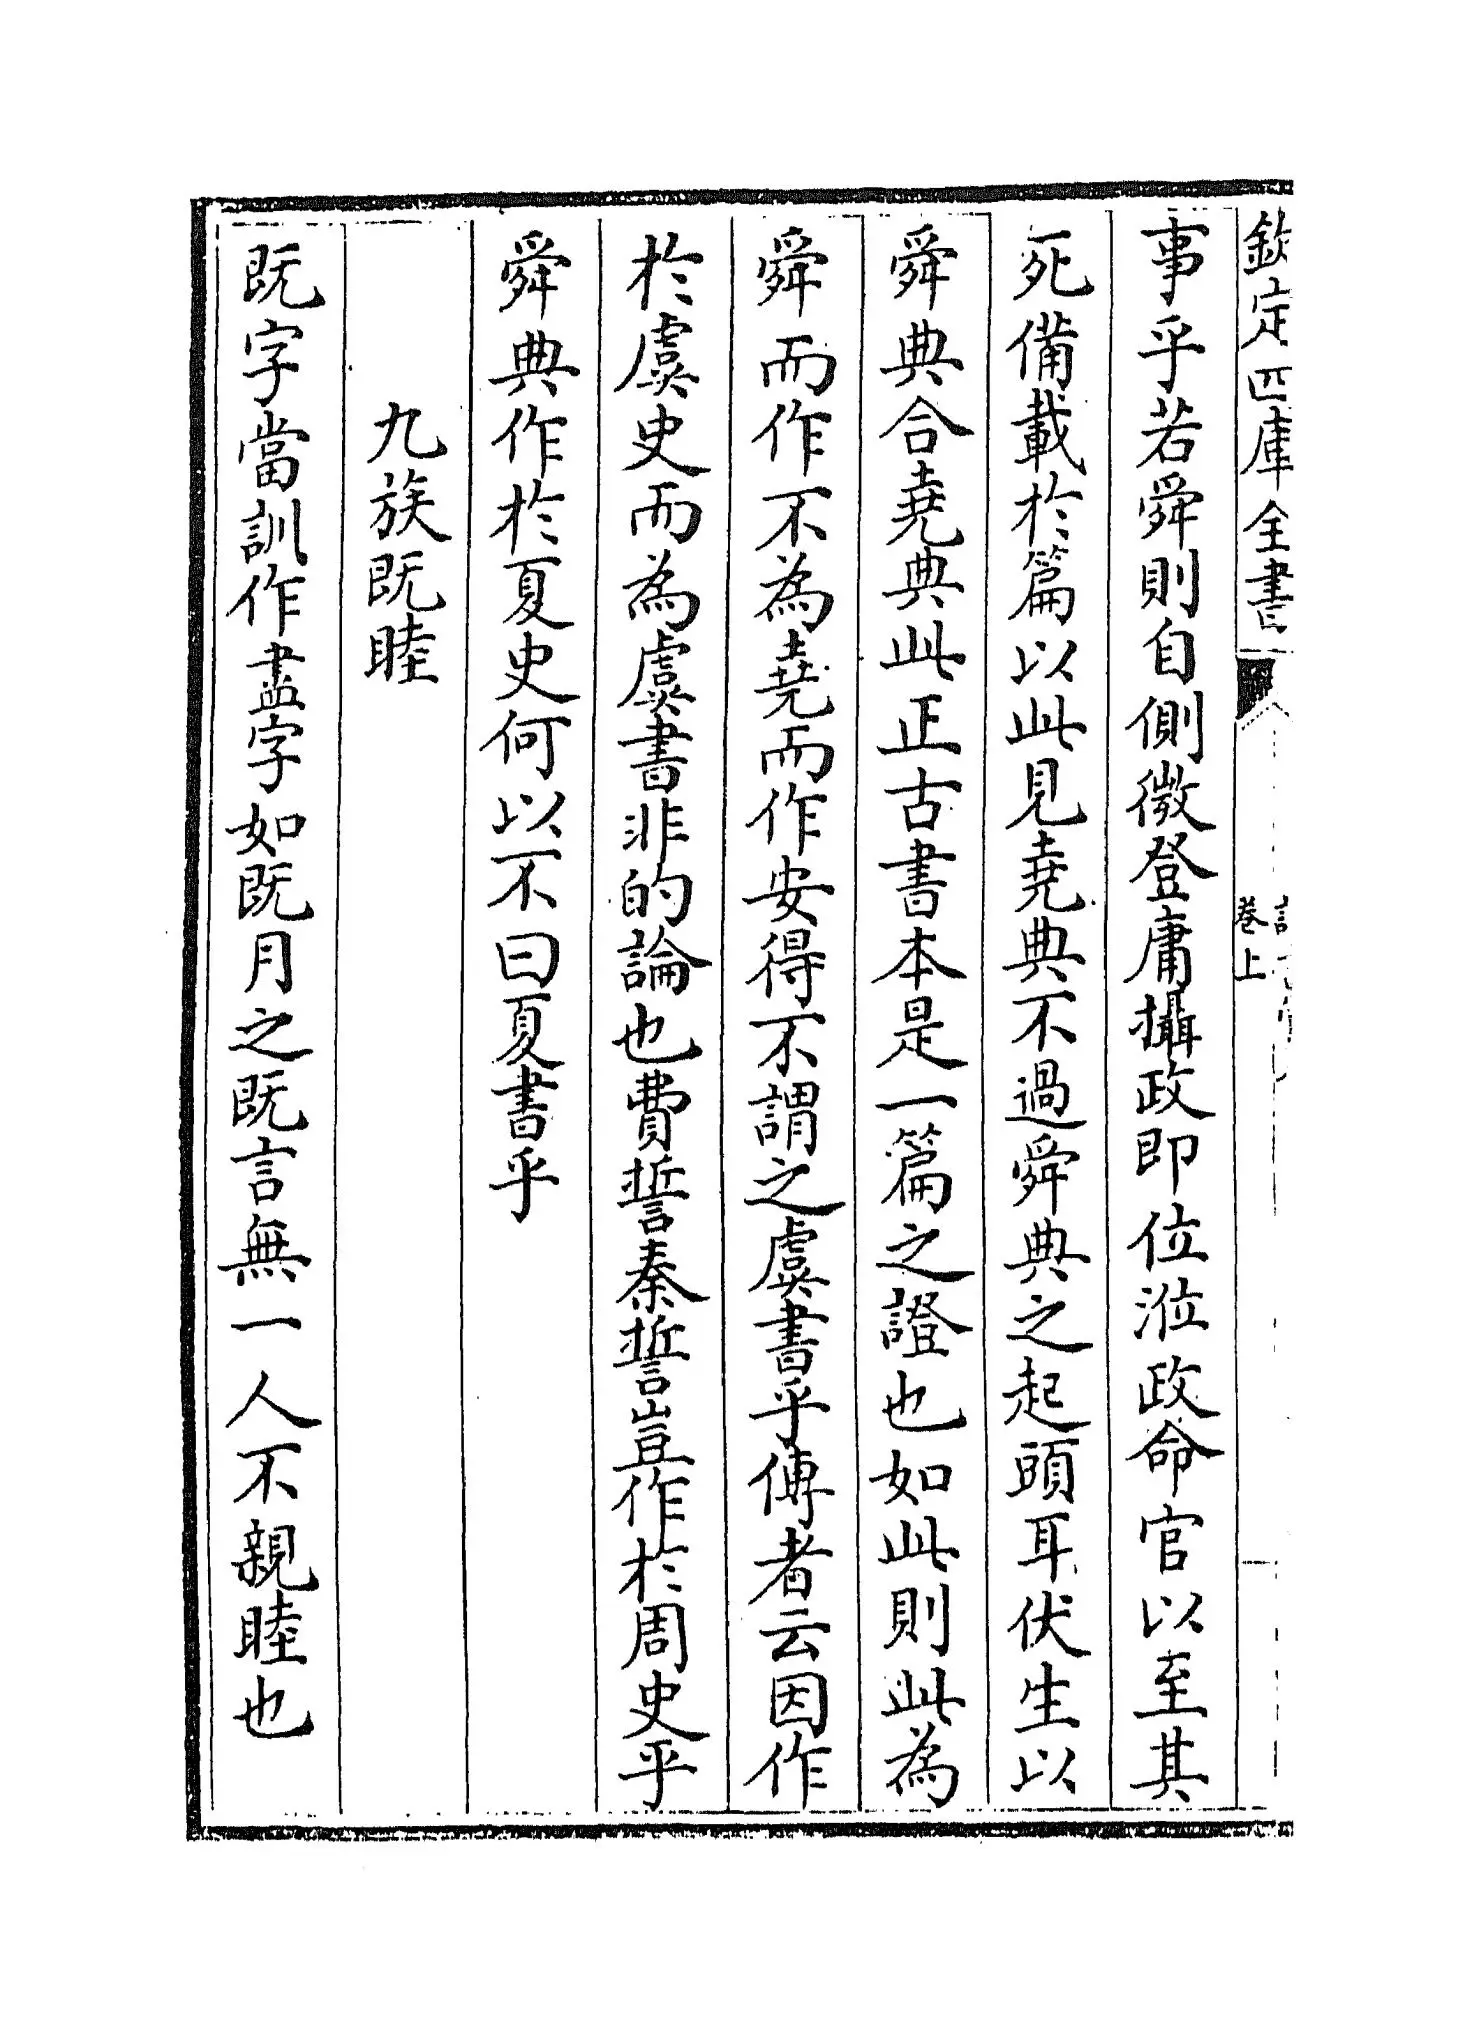 欽定四庫全書
卷上
事乎若舜則自側微登庸攝政即位涖政命官以至其
死備載於篇以此見堯典不過舜典之起頭耳伏生以
舜典合堯典此正古書本是一篇之證也如此則此為
舜而作不為堯而作安得不謂之虞書乎傅者云因作
於虞史而為虞書非的論也費誓秦誓豈作於周史乎
舜典作於夏史何以不曰夏書乎
九族既睦
既字當訓作盡字如既月之既言無一人不親睦也